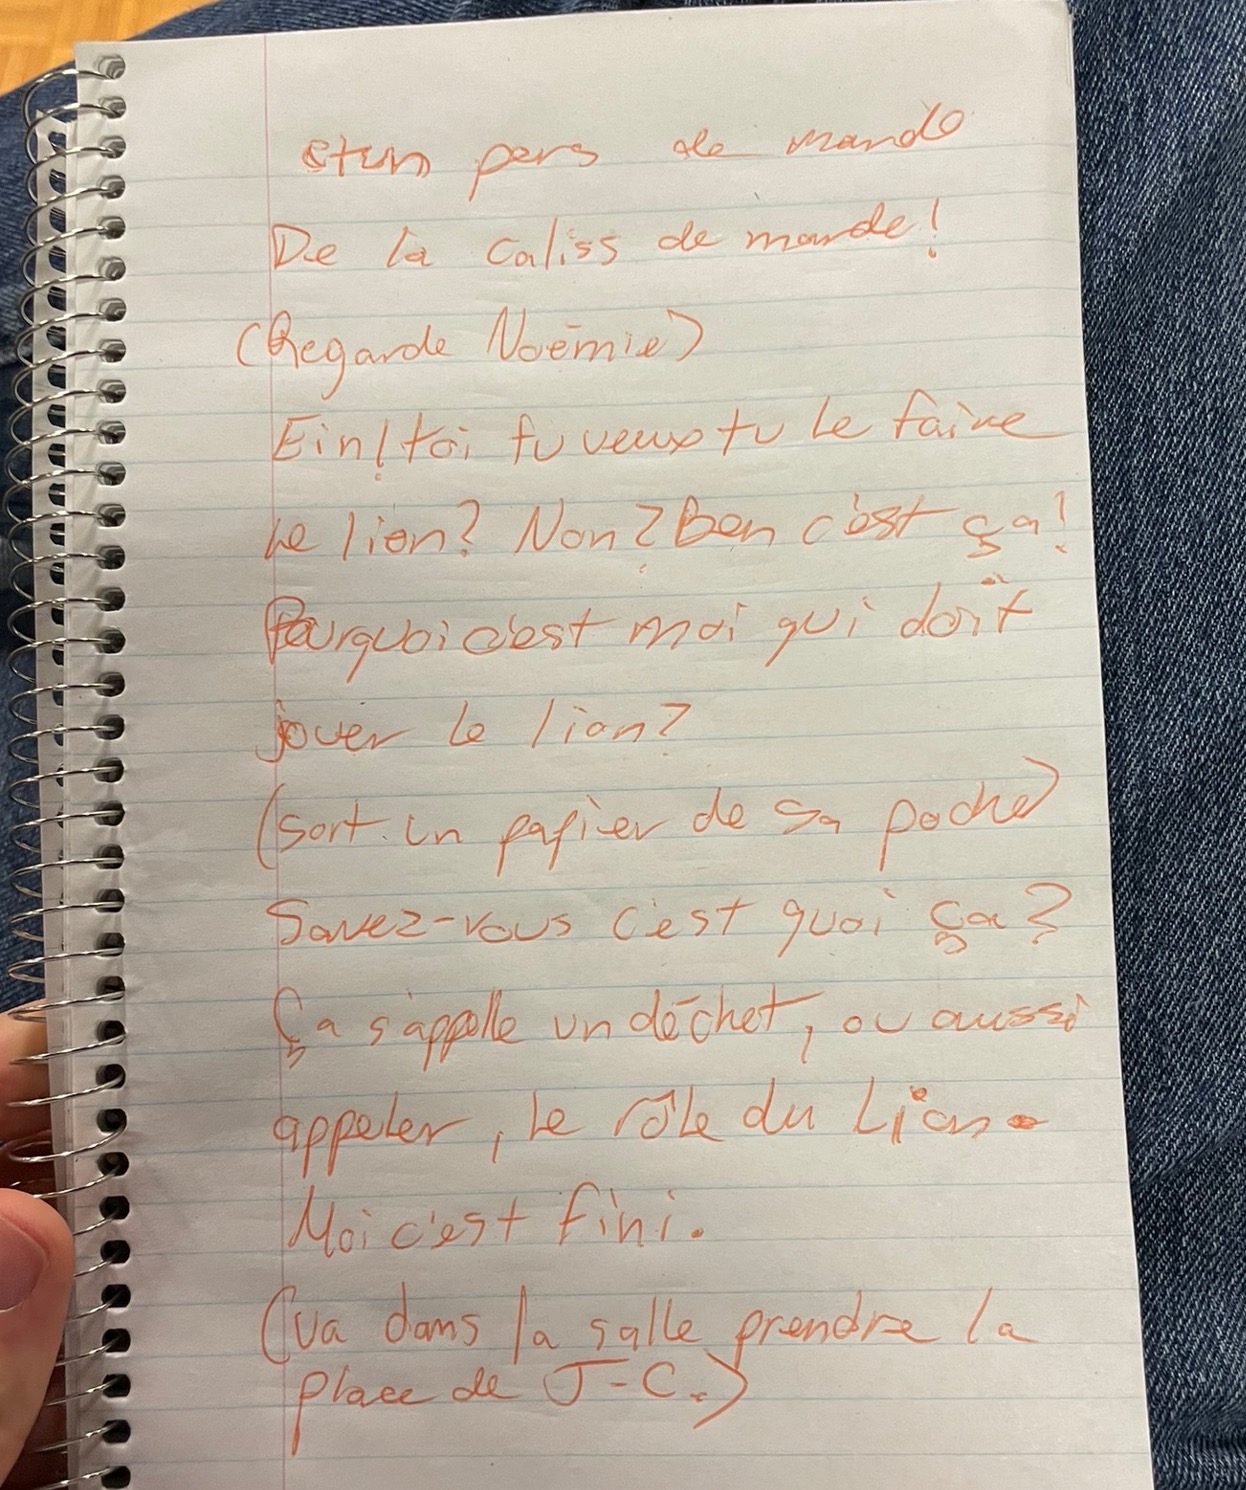 etun pers de marde
De la caliss de marde!
(Regarde Noémie)
Ein! toi tu veux tu le faire
le lion? Non? Ben c'est ça!
Pourquoi c'est moi qui doit
jouer le lion?
(sort un papier de sa poche)
Savez-vous c'est quoi ça?
Ça s'appelle un déchet, ou aussi
appeler, le rôle du Lion.
Moi c'est fini.
(va dans la salle prendre la
place de J-C.)